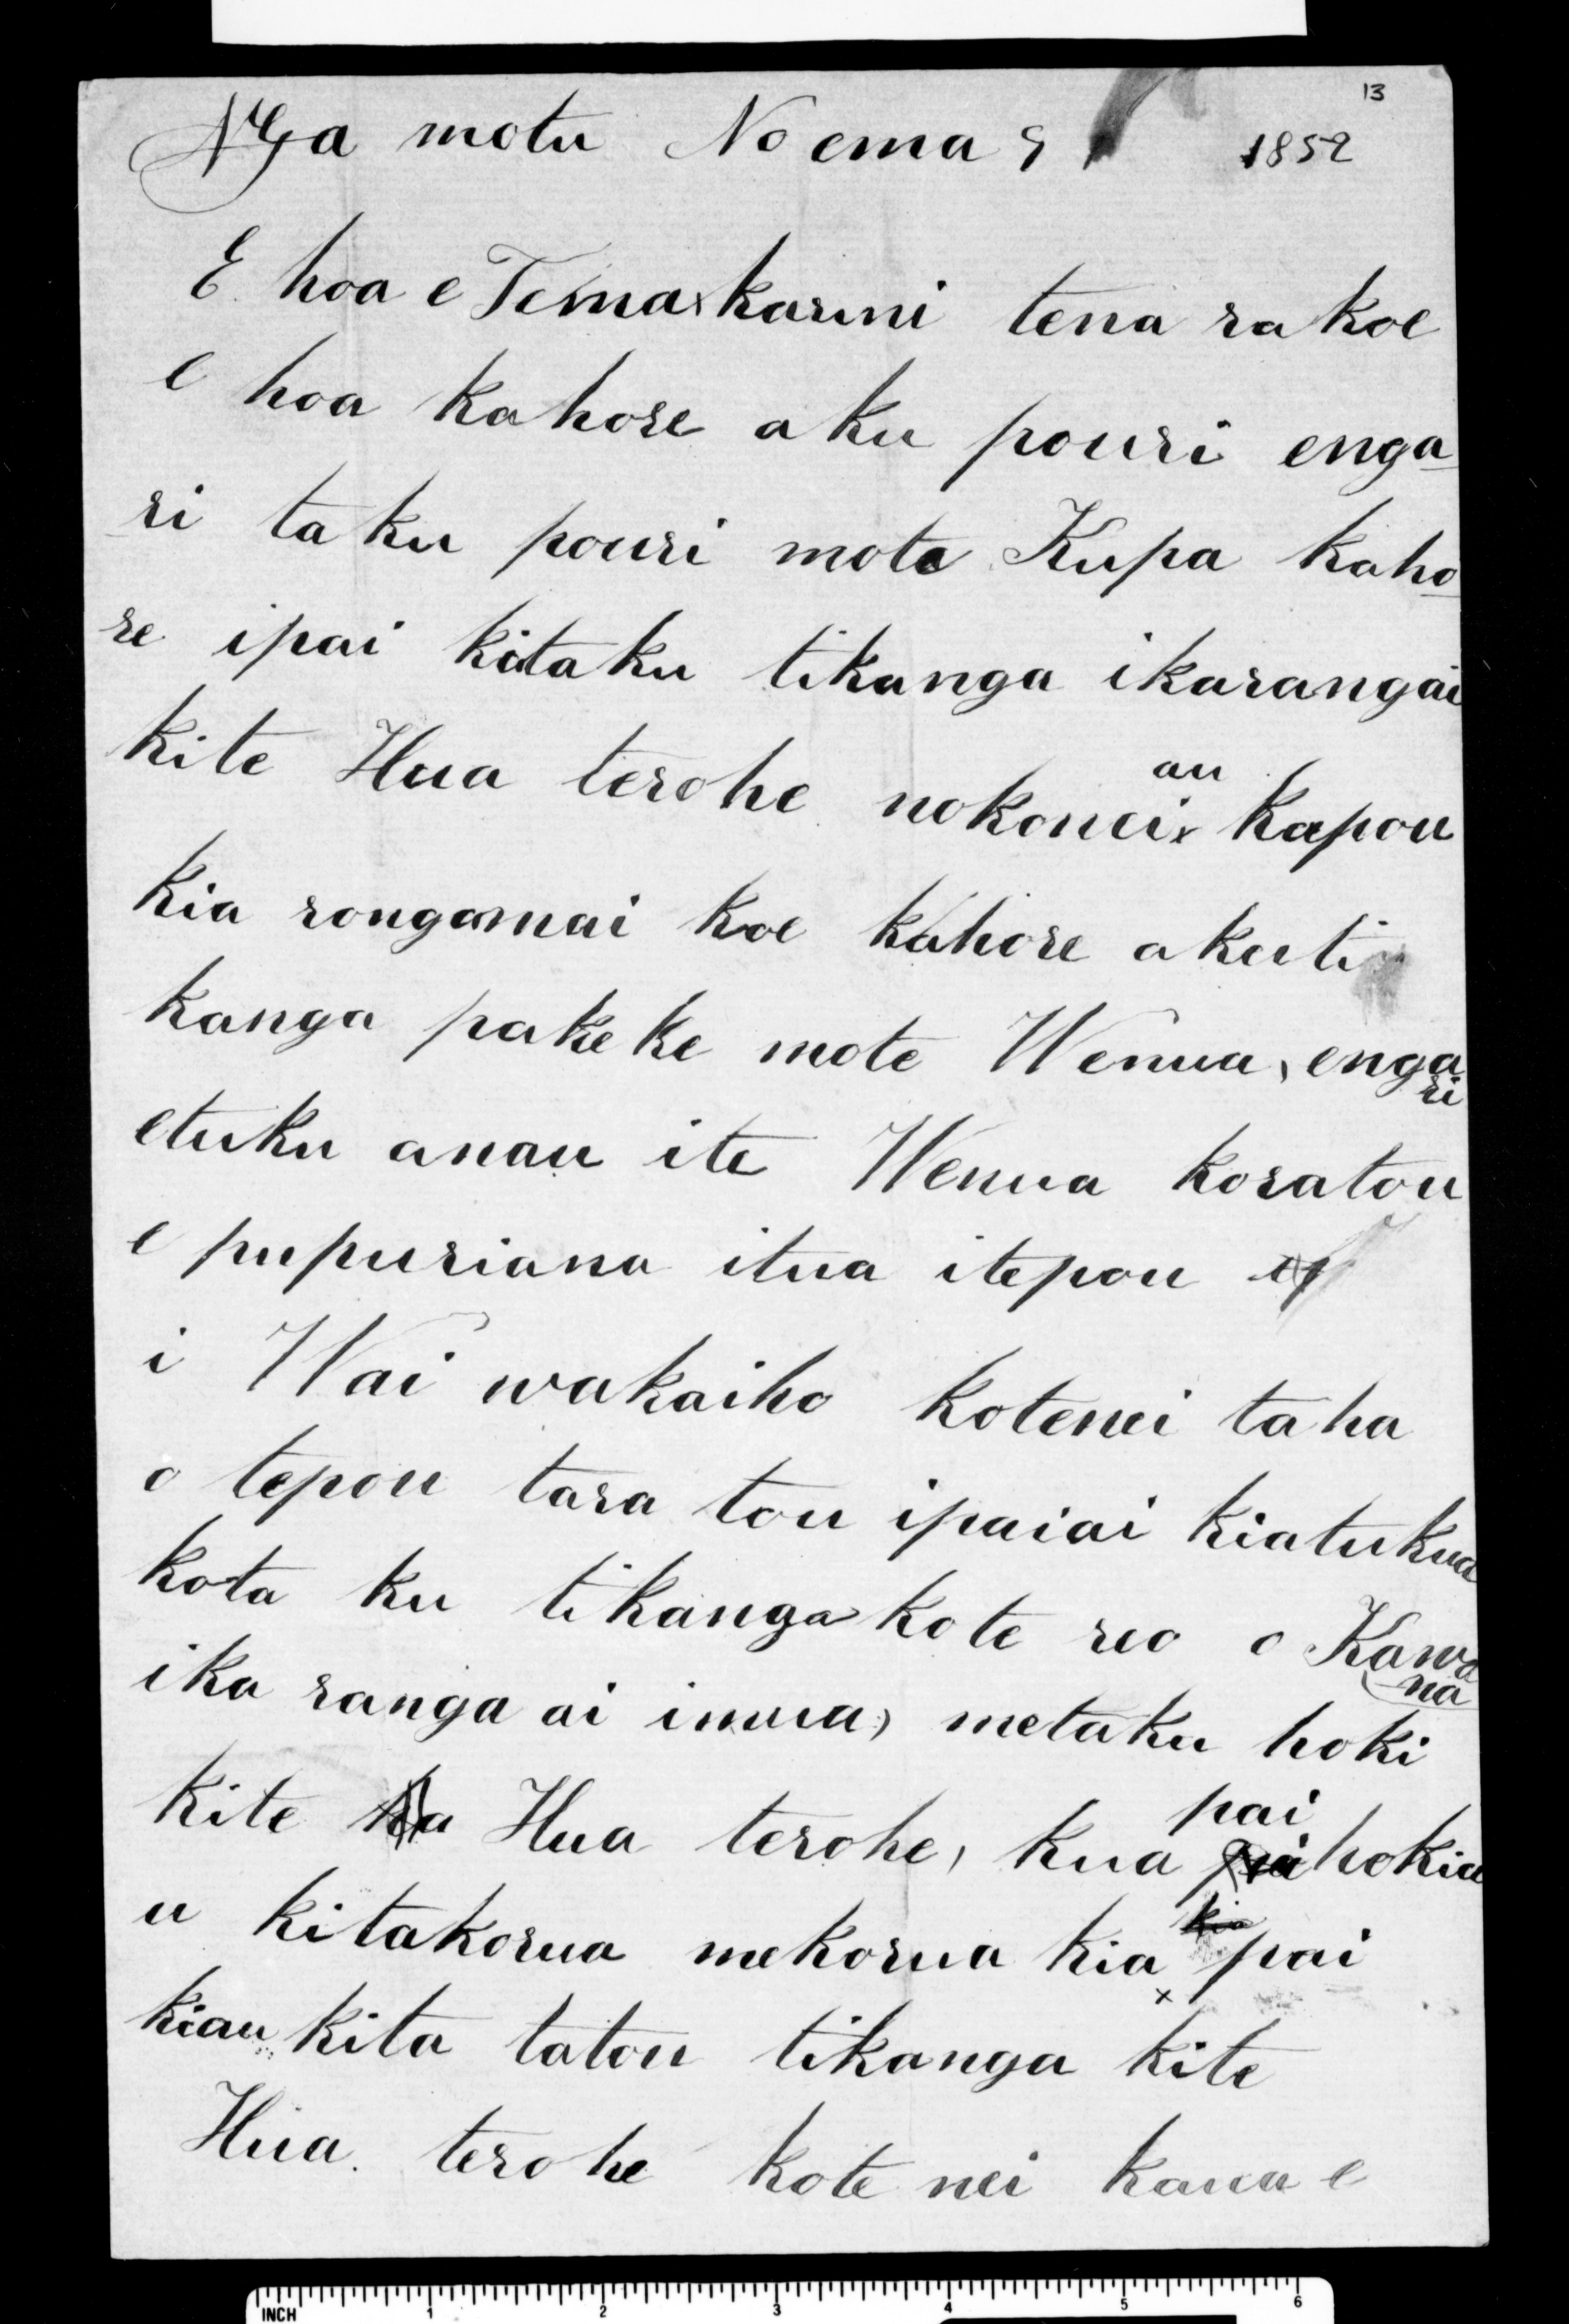 13
NGa motu No ema 9 1852
E hoa e Temakarini tena ra koe
e hoa kahore aku pouri enga
ri taku pouri mote Kupa kaho
re ipai kitaku tikanga ikarangai
kite Hua terohe nokonei au kapou
kia rongomai koe kahore akuti
kanga pakeke mote Wenua, engari
etuku anau ite Wenua koratou
e pupuriana itua itepou
i Wai wakaiho kotenei taha
o tepou tara tou ipaiai kiatukua
kota ku tikanga kote reo o Kawana
ika ranga ai imua, metaku hoki
kite Hua terohe, kua pai hokia
u kitakorua mekorua kia pai
kiau kita tatou tikanga kite
Hua terohe kote nei kaua e
INCH 1 2 3 4 5 6